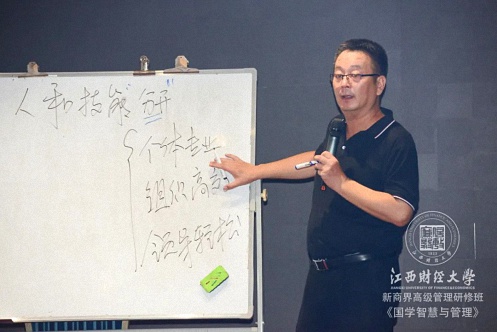 人和技能分开
个体专业
组织高效
领导轻松
江西财经大学
JIANGXI UNIVERSITY OF FINANCE & ECONOMICS
新商界高级管理研修班
《国学智慧与管理》